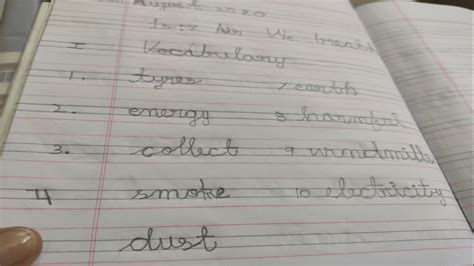 August 2020
In:- Air We breath
I Vocibulary
1. tyres 7 earth
2. energy 8 harmful
3. collect 9 windmills
4 smoke 10 electricity
dust